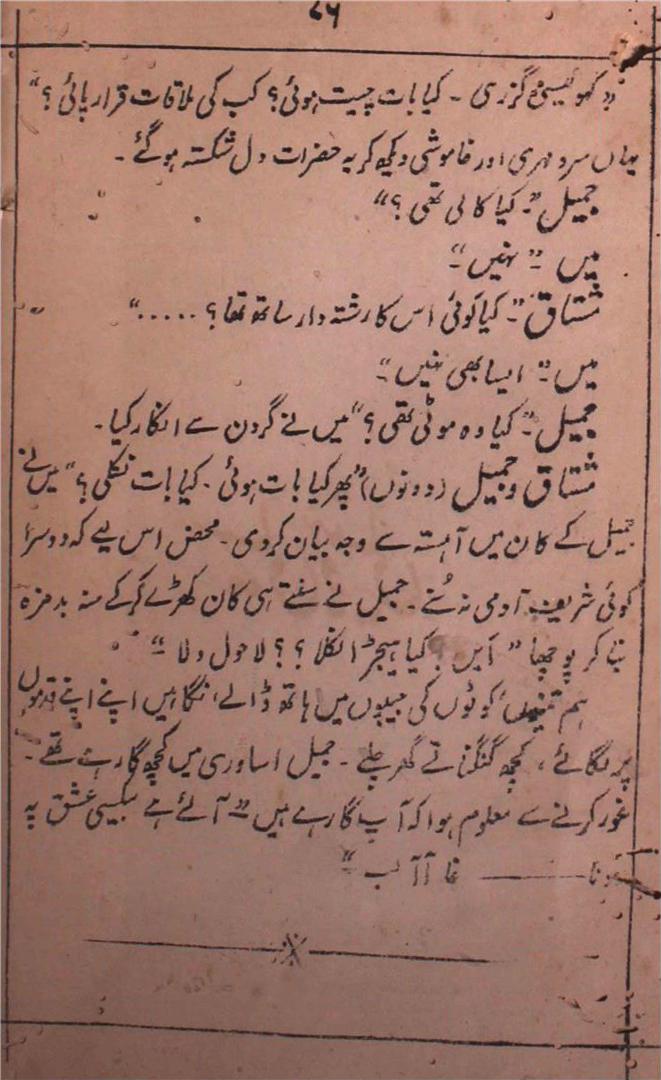 ۷۶
" کہو کیسی گزری ۔ کیا بات چیت ہوئی؟ کب کی ملاقات قرار پائی؟"
یہاں سرد مہری اور خاموشی دیکھ کر یہ حضرات دل شکستہ ہوگئے ۔
جمیل "۔ کیا کالی تھی؟"
میں "۔ نہیں "۔
مشتاق "۔ کیا کوئی اس کا رشتہ دار ساتھ تھا؟ ....."
میں "۔ ایسا بھی نہیں "۔
جمیل "۔ کیا وہ موٹی تھی؟" میں نے گردن سے انکار کیا ۔
مشتاق و جمیل (دونوں) "پھر کیا بات ہوئی ۔ کیا بات نکلی؟" میں نے
جمیل کے کان میں آہستہ سے وجہ بیان کردی ۔ محض اس لیے کہ دوسرا
کوئی شریف آدمی نہ سُنے ۔ جمیل نے سنتے ہی کان کھڑے کرکے منہ بدمزہ
بنا کر پوچھا " آیں؟ کیا ہیجڑا نکلا؟؟ لاحول ولا "۔
ہم تینوں کوٹوں کی جیبوں میں ہاتھ ڈالے، نگاہیں اپنے اپنے قدموں
پر لگائے ، کچھ گنگناتے گھر چلے ۔ جمیل اساوری میں کچھ گا رہے تھے ۔
غور کرنے سے معلوم ہوا کہ آپ گا رہے ہیں "۔ آئے ہے بیکسی عشق پہ
رونا ——— غا آآ لب "